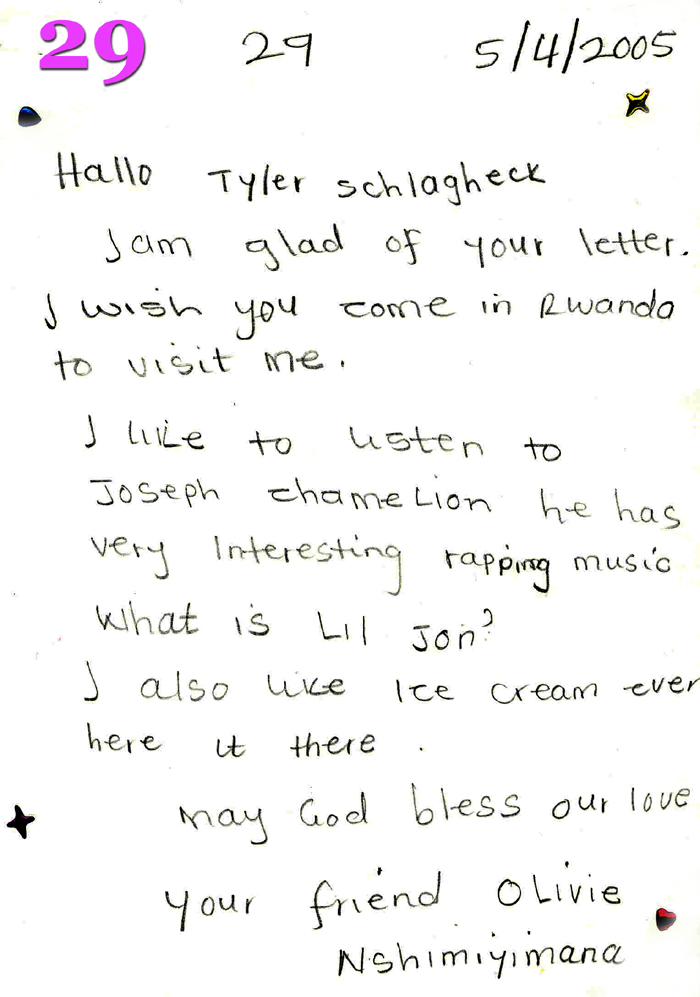 29 29 5/4/2005
Hallo Tyler schlagheck
I am glad of your letter.
I wish you come in Rwanda
to visit me.
I like to listen to
Joseph chamelion he has
very Interesting rapping music
What is Lil Jon?
I also like Ice cream ever
here it there .
may God bless our love
your friend Olivie
Nshimiyimana